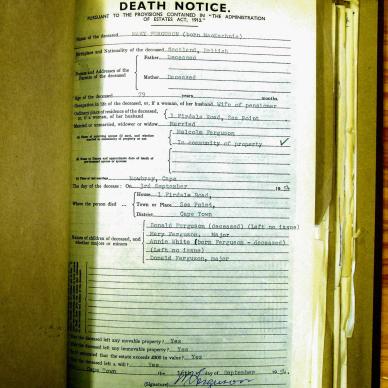 DEATH NOTICE.
PURSUANT TO THE PROVISIONS CONTAINED IN "THE ADMINISTRATION
OF ESTATES ACT, 1913."
Name of the deceased MARY FERGUSON (born
Birthplace and Nationality of the deceased Scotland, British
Names and Addresses of the Parents of the deceased
Father Deceased
Mother Deceased
Age of the deceased 79 years months
Occupation in life of the deceased, or, if a woman, of her husband Wife of pensioner
Ordinary place of residence of the deceased, or, if a woman, of her husband 1 Firdale Road, Sea Point
Married or unmarried, widower or widow Married
Malcolm Ferguson
In community of property ✓
Mowbray, Cape
The day of the decease: On 3rd September
House 1 Firdale Road,
Where the person died Town or Place Sea Point,
District Cape Town
Donald Ferguson (deceased) (Left no issue)
Names of children of deceased, and whether majors or minors
Mary Ferguson, Major
Annie White (born Ferguson - deceased)
(Left no issue)
Donald Ferguson, major
the deceased left any movable property? Yes
the deceased left any immovable property? Yes
estimated that the estate exceeds £300 in value? Yes
the deceased left a will? Yes
Cape Town the day of September
(Signature) Ferguson